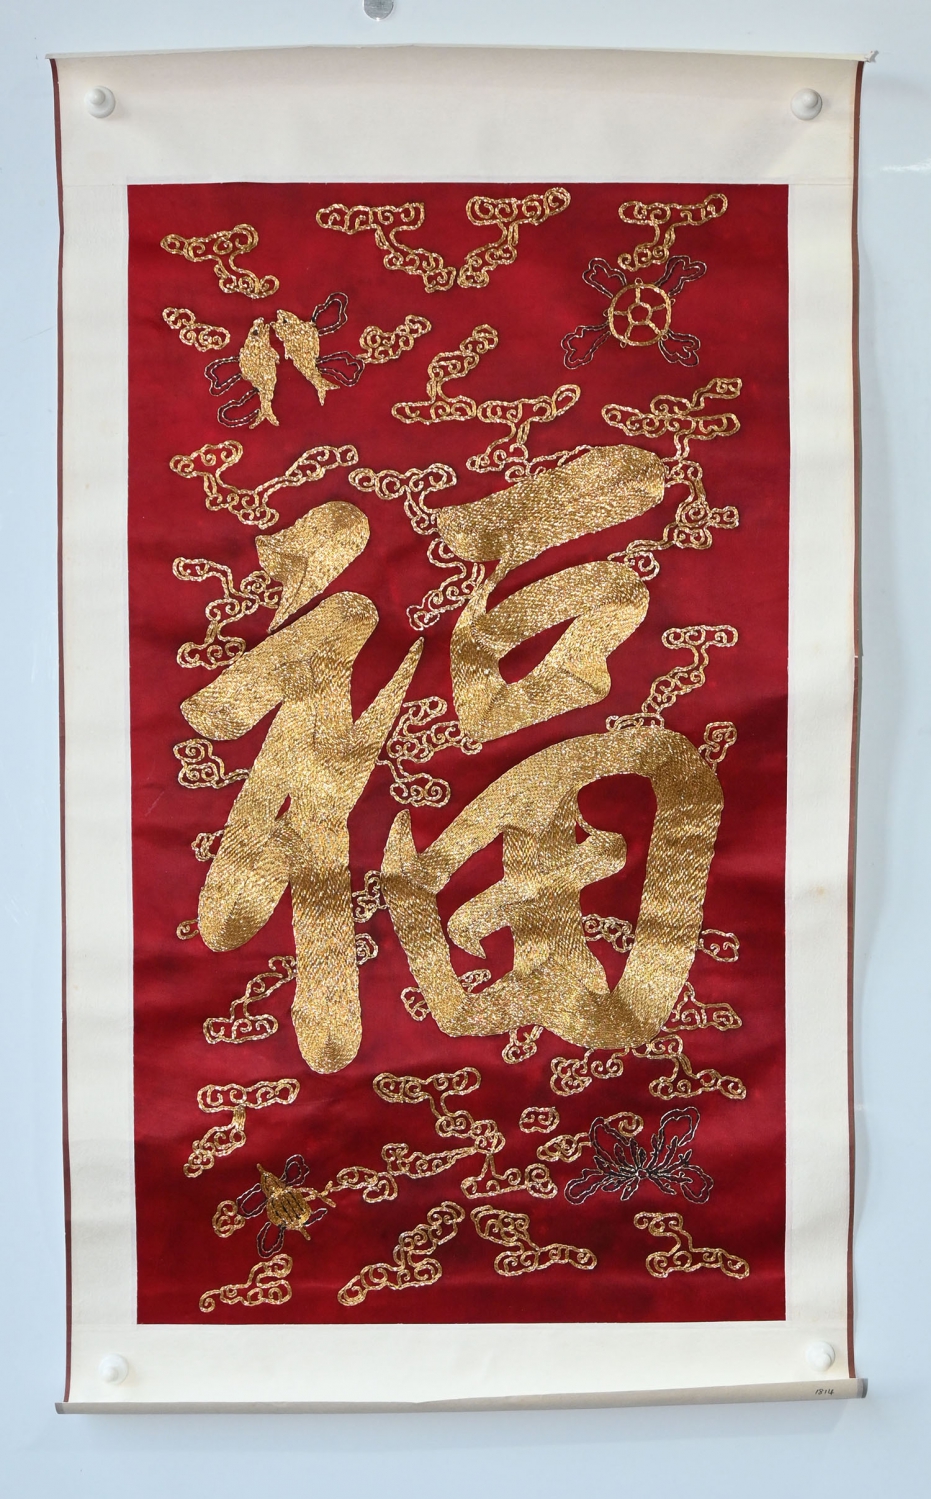 福
1814